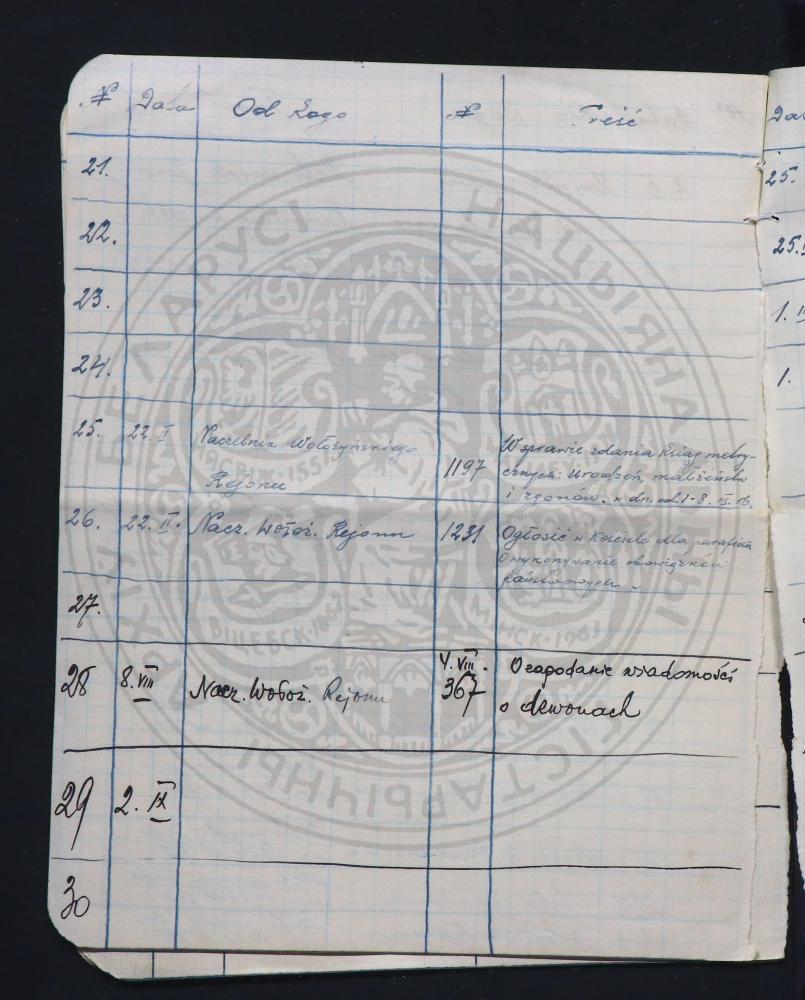 № Data Od kogo № Treść
21.
22.
23.
24.
25. 22. II Naczelnik Wołożyńskiego Rejonu 1197 W sprawie zdania ksiąg metry-
cznych: Urodzeń, małżeństw
i zgonów. w dn. od 1-8. III. 
26. 22. II. Nacz. Wołoż. Rejonu 1231 Ogłosić w Kościele dla parafian
o wykonywanie obowiązków
państwowych
27.
28 8. VIII Nacz. Wołoż. Rejonu 4. VIII. 367 wiadomości
o dzwonach
29 2. IX
30
Dat
25.
25.
1.
1.
БЕЛАРУСІ НАЦЫЯНАЛЬНЫ ГІСТАРЫЧНЫ АРХІЎ
ВІЦЕБСК·1863
МІНСК·1963